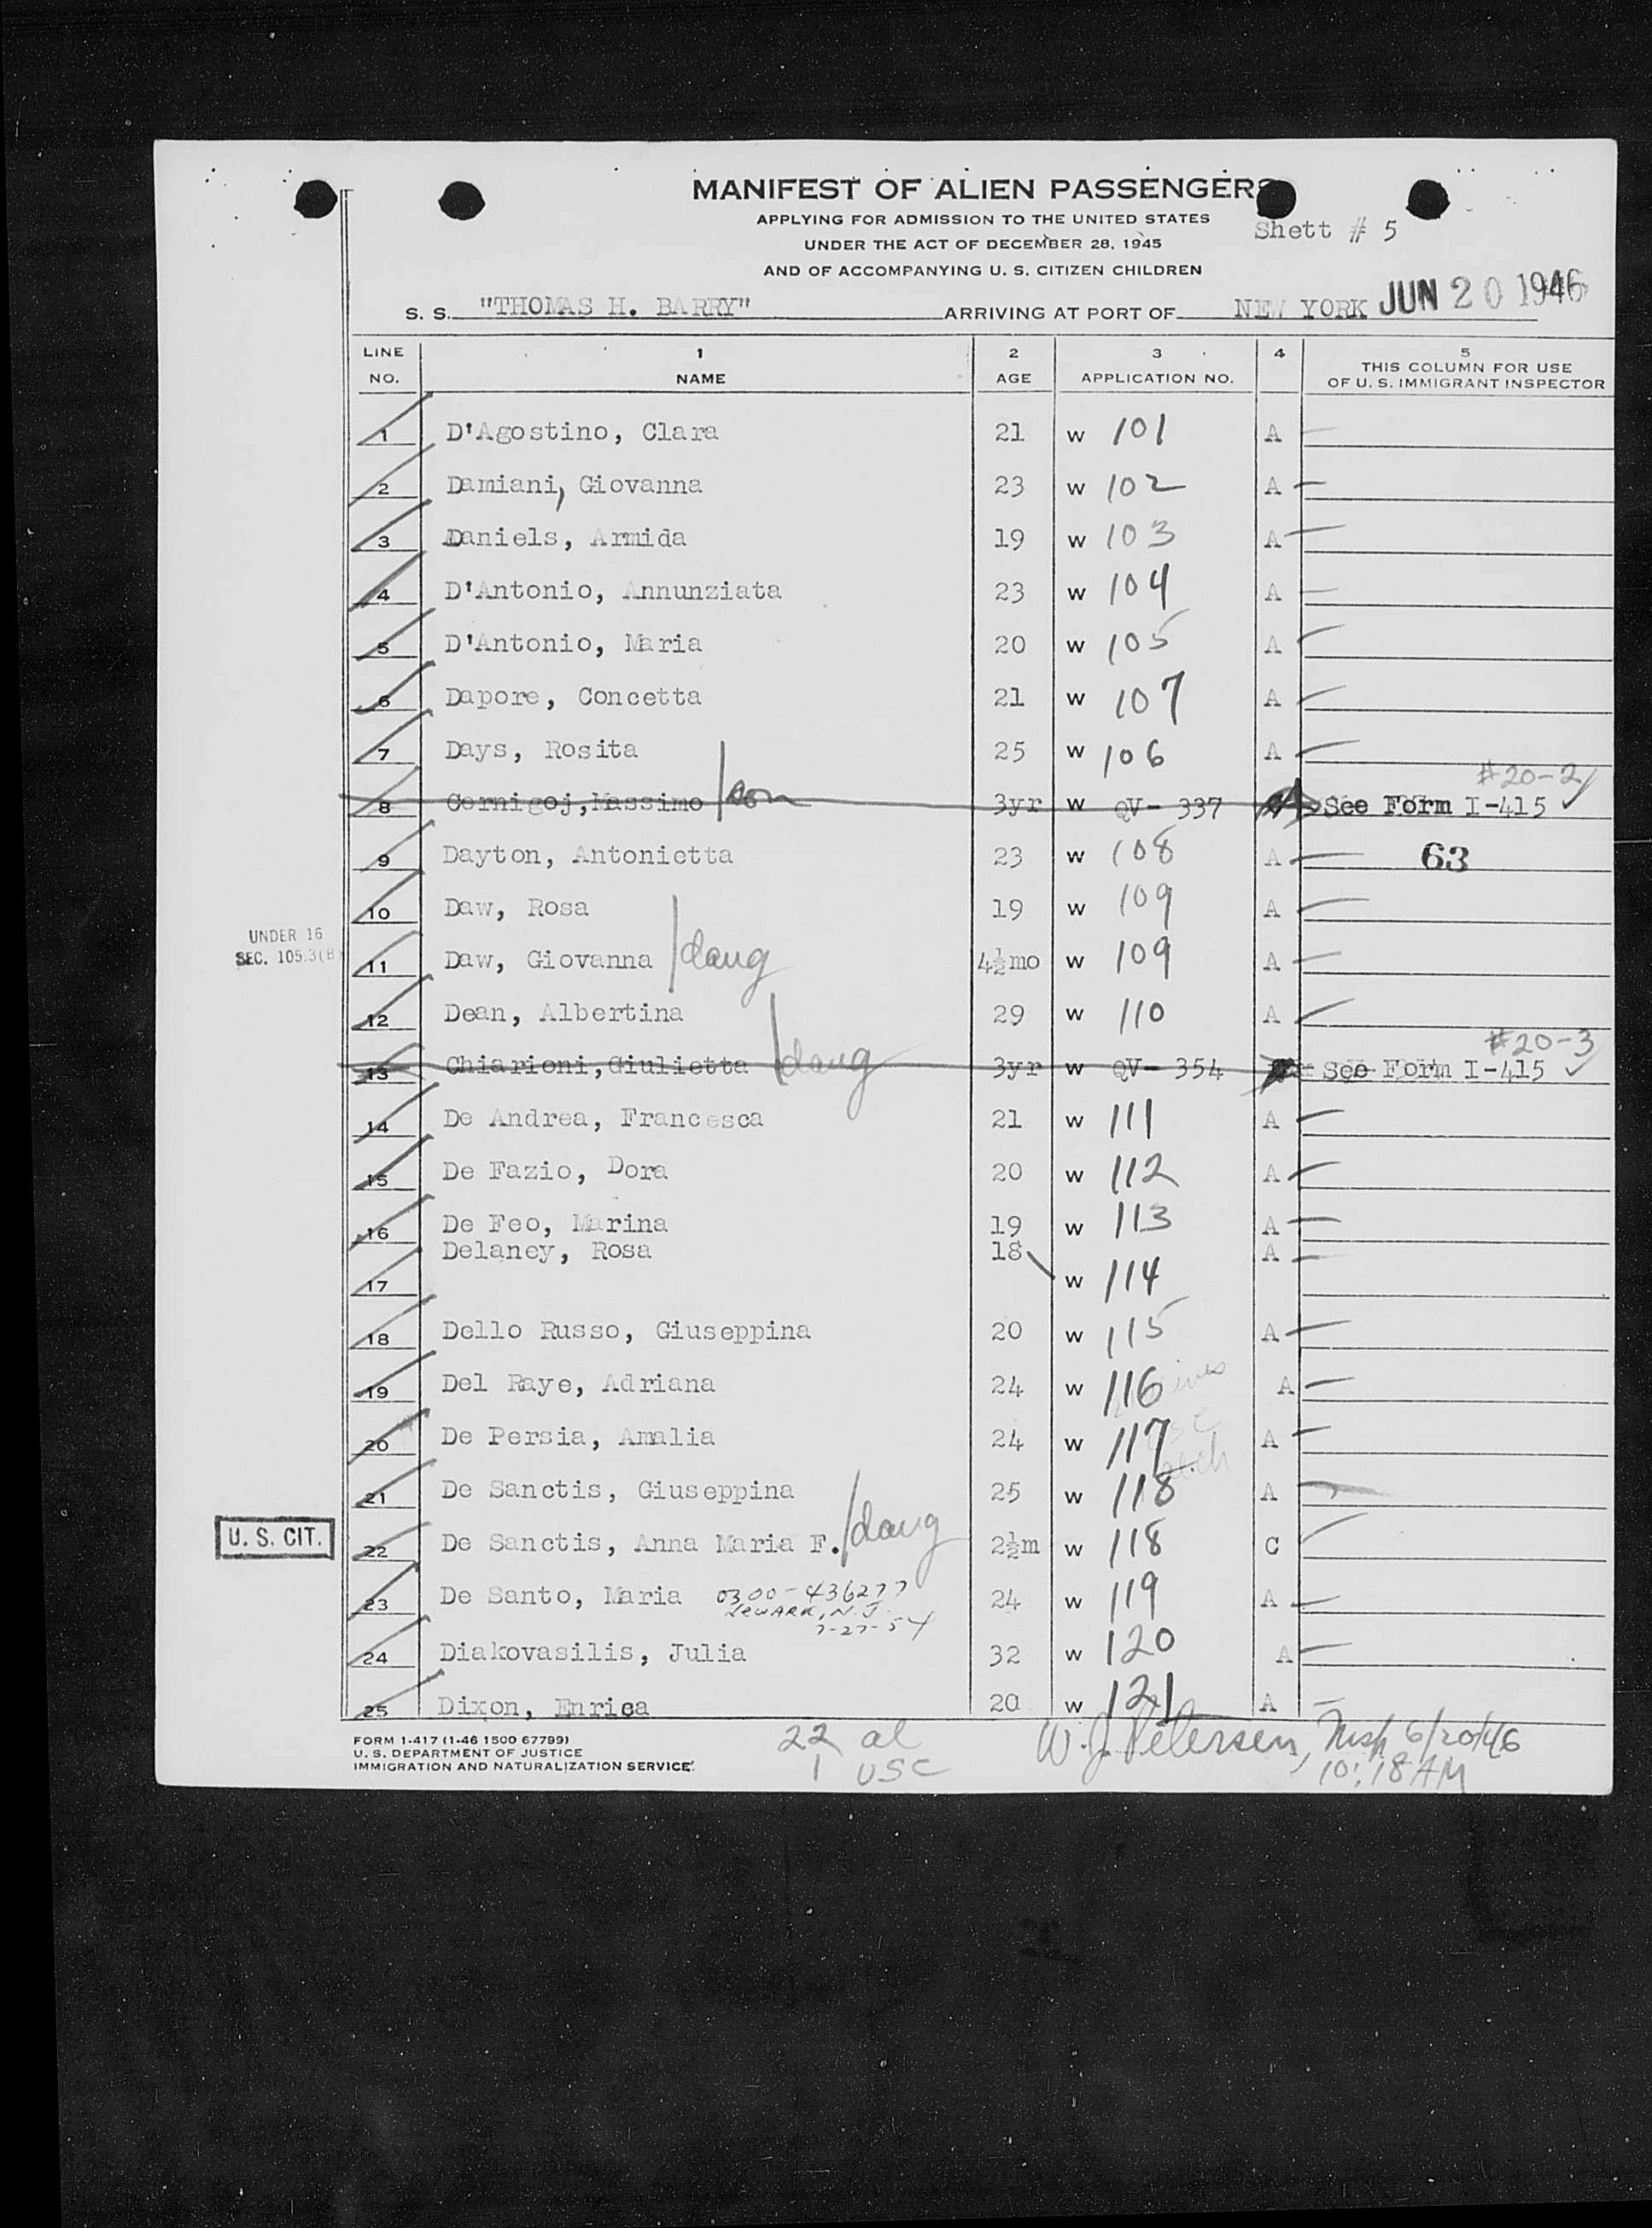 MANIFEST OF ALIEN PASSENGERS
APPLYING FOR ADMISSION TO THE UNITED STATES
UNDER THE ACT OF DECEMBER 28, 1945
AND OF ACCOMPANYING U. S. CITIZEN CHILDREN
Shett # 5
S. S. "THOMAS H. BARRY" ARRIVING AT PORT OF NEW YORK JUN 20 1946
LINE NO. 1 NAME 2 AGE 3 APPLICATION NO. 4 5 THIS COLUMN FOR USE OF U. S. IMMIGRANT INSPECTOR
1 D'Agostino, Clara 21 W 101 A
2 Damiani, Giovanna 23 W 102 A
3 Daniels, Armida 19 W 103 A
4 D'Antonio, Annunziata 23 W 104 A
5 D'Antonio, Maria 20 W 105 A
6 Dapore, Concetta 21 W 107 A
7 Days, Rosita 25 W 106 A
#20-2
8 Cornigoj, Massimo son 3yr W QV- 337 A See Form I-415
9 Dayton, Antonietta 23 W 108 A 63
10 Daw, Rosa 19 W 109 A
UNDER 16
SEC. 105.3(B)
11 Daw, Giovanna daug 4½mo W 109 A
12 Dean, Albertina 29 W 110 A
#20-3
13 Chiarioni, Giulietta daug 3yr W QV- 354 See Form I-415
14 De Andrea, Francesca 21 W 111 A
15 De Fazio, Dora 20 W 112 A
16 De Feo, Marina 19 W 113 A
17 Delaney, Rosa 18 W 114 A
18 Dello Russo, Giuseppina 20 W 115 A
19 Del Raye, Adriana 24 W 116 A
20 De Persia, Amalia 24 W 117 A
21 De Sanctis, Giuseppina 25 W 118 A
U. S. CIT.
22 De Sanctis, Anna Maria F. daug 2½m W 118 C
23 De Santo, Maria 0300-436277 24 W 119 A
Newark, N.J.
7-27-54
24 Diakovasilis, Julia 32 W 120 A
25 Dixon, Enrica 20 W 121 A
FORM I-417 (1-46 1500 67799)
U. S. DEPARTMENT OF JUSTICE
IMMIGRATION AND NATURALIZATION SERVICE
22 al
1 USC
W. J. Petersen, 6/20/46
10:18 AM